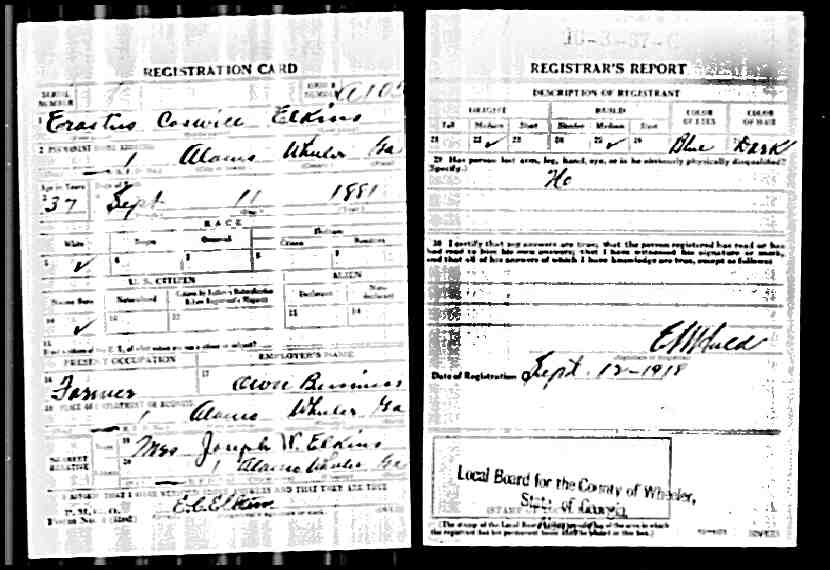 REGISTRATION CARD
SERIAL NUMBER
ORDER NUMBER A105
1 Erastus Caswill Elkins
2 PERMANENT HOME ADDRESS
1 Alamo Wheeler Ga
Age in Years Date of Birth
37 Sept 11 1881
RACE
White Negro Oriental Indian
Citizen
5 ✓ 6 7 8 9
U. S. CITIZEN ALIEN
Native Born Naturalized Citizen by Father's Naturalization Declarant Non-declarant
10 ✓ 11 12 13 14
15
PRESENT OCCUPATION EMPLOYER'S NAME
16 Farmer 17 Own Business
18 PLACE OF EMPLOYMENT OR BUSINESS
1 Alamo Wheeler Ga
NEAREST RELATIVE 19 Mrs Joseph W. Elkins
20 1 Alamo Wheeler Ga
I AFFIRM THAT I HAVE VERIFIED ANSWERS AND THAT THEY ARE TRUE
E.C. Elkins
REGISTRAR'S REPORT
DESCRIPTION OF REGISTRANT
HEIGHT BUILD COLOR OF EYES COLOR OF HAIR
Tall Medium Short Slender Medium Stout
21 22 ✓ 23 24 25 ✓ 26 Blue Dark
29 Has person lost arm, leg, hand, eye, or is he obviously physically disqualified?
(Specify.)
No
30 I certify that my answers are true; that the person registered has read or has
had read to him his own answers; that I have witnessed his signature or mark,
and that all of his answers of which I have knowledge are true, except as follows:
Date of Registration Sept. 12-1918
Local Board for the County of Wheeler,
State of Georgia
(The stamp of the Local Board having jurisdiction of the area in which
the registrant has his permanent home shall be placed in this box.)